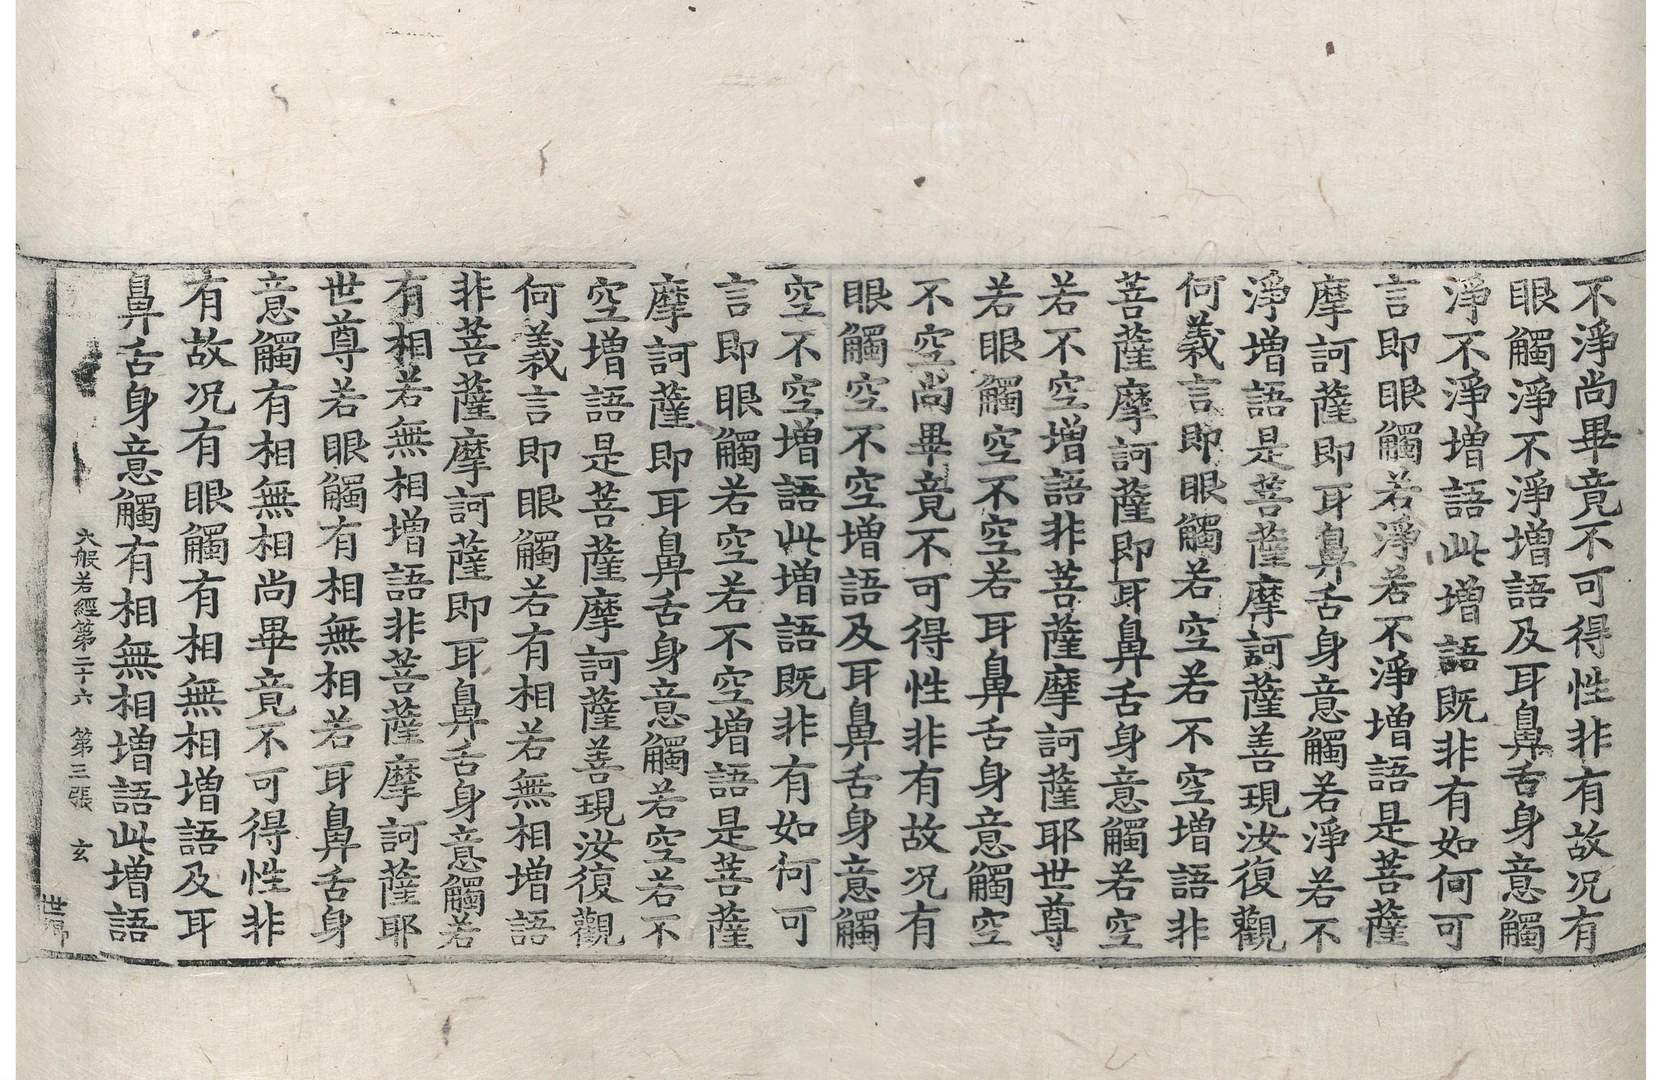 不淨尚畢竟不可得性非有故况有
眼觸淨不淨增語及耳鼻舌身意觸
淨不淨增語此增語旣非有如何可
言即眼觸若淨若不淨增語是菩薩
摩訶薩即耳鼻舌身意觸若淨若不
淨增語是菩薩摩訶薩善現汝復觀
何義言即眼觸若空若不空增語非
菩薩摩訶薩即耳鼻舌身意觸若空
若不空增語非菩薩摩訶薩耶世尊
若眼觸空不空若耳鼻舌身意觸空
不空尚畢竟不可得性非有故况有
眼觸空不空增語及耳鼻舌身意觸
空不空增語此增語旣非有如何可
言即眼觸若空若不空增語是菩薩
摩訶薩即耳鼻舌身意觸若空若不
空增語是菩薩摩訶薩善現汝復觀
何義言即眼觸若有相若無相增語
非菩薩摩訶薩即耳鼻舌身意觸若
有相若無相增語非菩薩摩訶薩耶
世尊若眼觸有相無相若耳鼻舌身
意觸有相無相尚畢竟不可得性非
有故况有眼觸有相無相增語及耳
鼻舌身意觸有相無相增語此增語
大般若經第二十六 第三張 玄